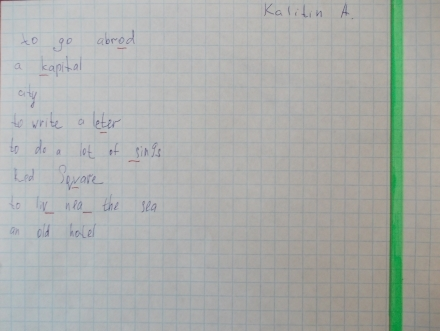 Kalitin A.
to go abrod
a kapital
city
to write a leter
to do a lot of sings
Red Sqvare
to liv nea the sea
an old hotel